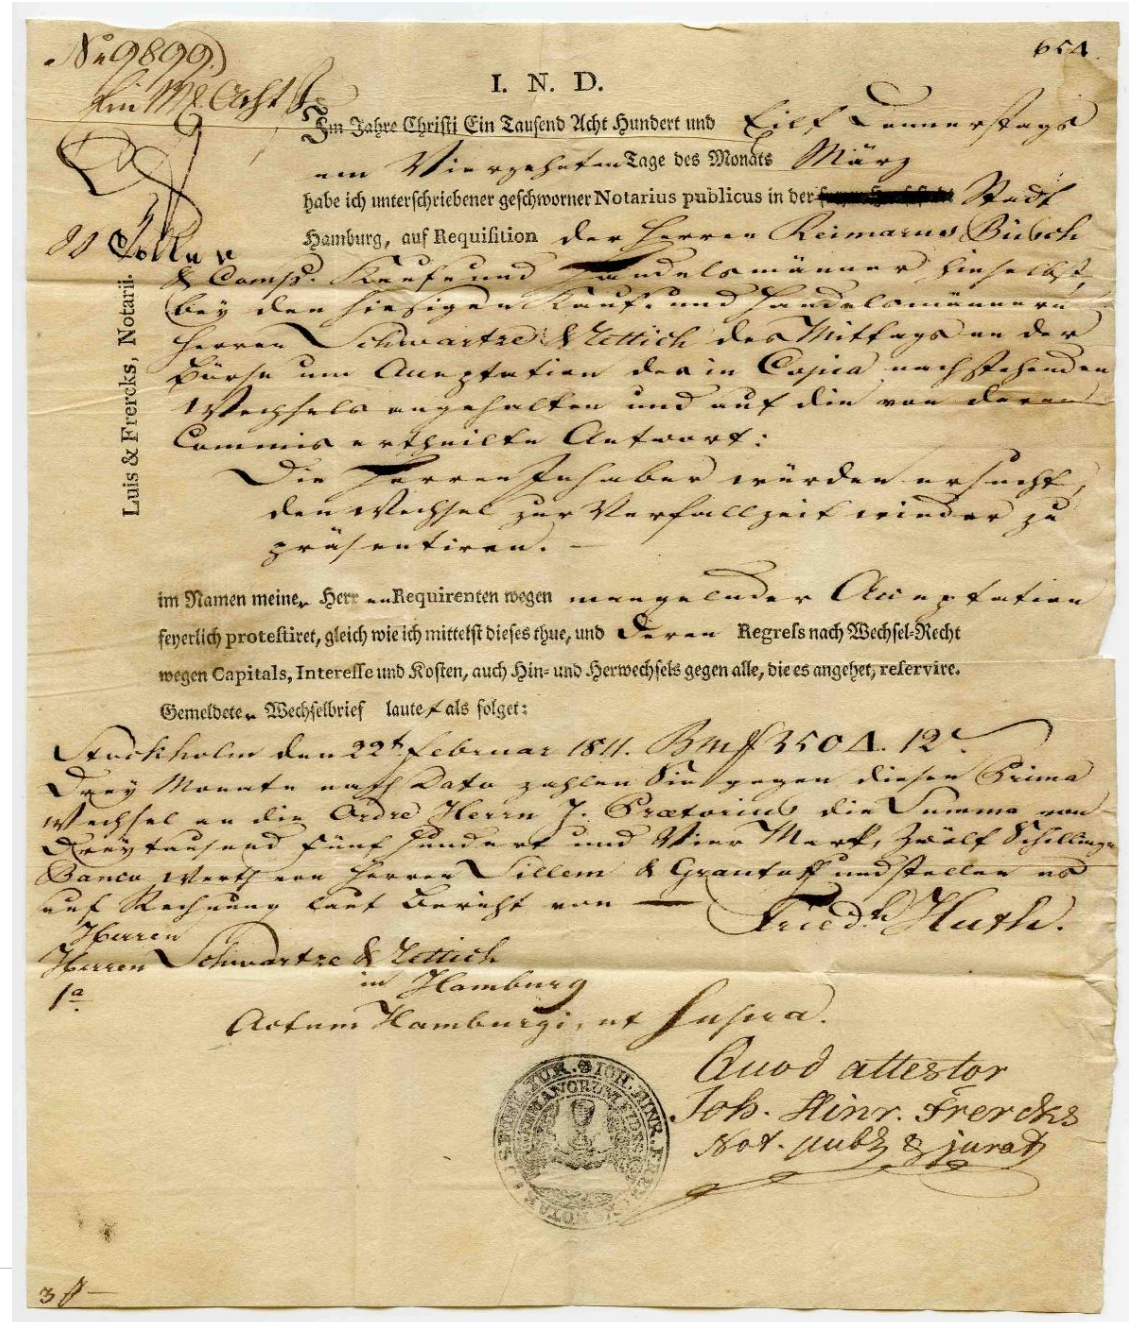 No 9899.
654.
Ein Mk Acht ß
I. N. D.
Im Jahre Christi Ein Tausend Acht Hundert und Eilf Donnerstags
am Vierzehnten Tage des Monats März
habe ich unterschriebener geschworner Notarius publicus in der Stadt
Hamburg, auf Requisition der Herren Reimarus Büsch
& Comp. Kauf und Handelsmänner hieselbst,
bey den hiesigen Kauf- und Handelsmännern
Herren Schwartze & Zettich des Mittags an der
Börse um Acceptation des in Copia nachstehenden
Wechsels angehalten und auf die von deren
Commis ertheilte Antwort:
Die Herren Inhaber würden ersucht,
den Wechsel zur Verfallzeit wieder zu
präsentiren. —
im Namen meiner Herren Requirenten wegen mangelnder Acceptation
feyerlich protestiret, gleich wie ich mittelst dieses thue, und deren Regress nach Wechsel-Recht
wegen Capitals, Interesse und Kosten, auch Hin- und Herwechsels gegen alle, die es angehet, reservire.
Gemeldeter Wechselbrief lautet als folget:
Stockholm den 22t Februar 1811. 3504. 12
Drey Monate nach Dato zahlen Sie gegen diesen Prima
Wechsel an die Ordre Herrn J. Prætorius die Summa von
Dreytausend Fünf Hundert und Vier Mark, Zwölf Schillinge
Banco Werth von Herren Sillem & Grautoff und stellen es
auf Rechnung laut Bericht von — Friedh. Huth.
Herren
Herren Schwartze & Zettich
in Hamburg
1a.
Actum Hamburgi, ut Supra.
Quod attestor
Joh. Hinr. Frercks
Not. publ & jurat
Luis & Frercks, Notarii.
JOH. HINR. FRERCKS NOTAR
3 ß —